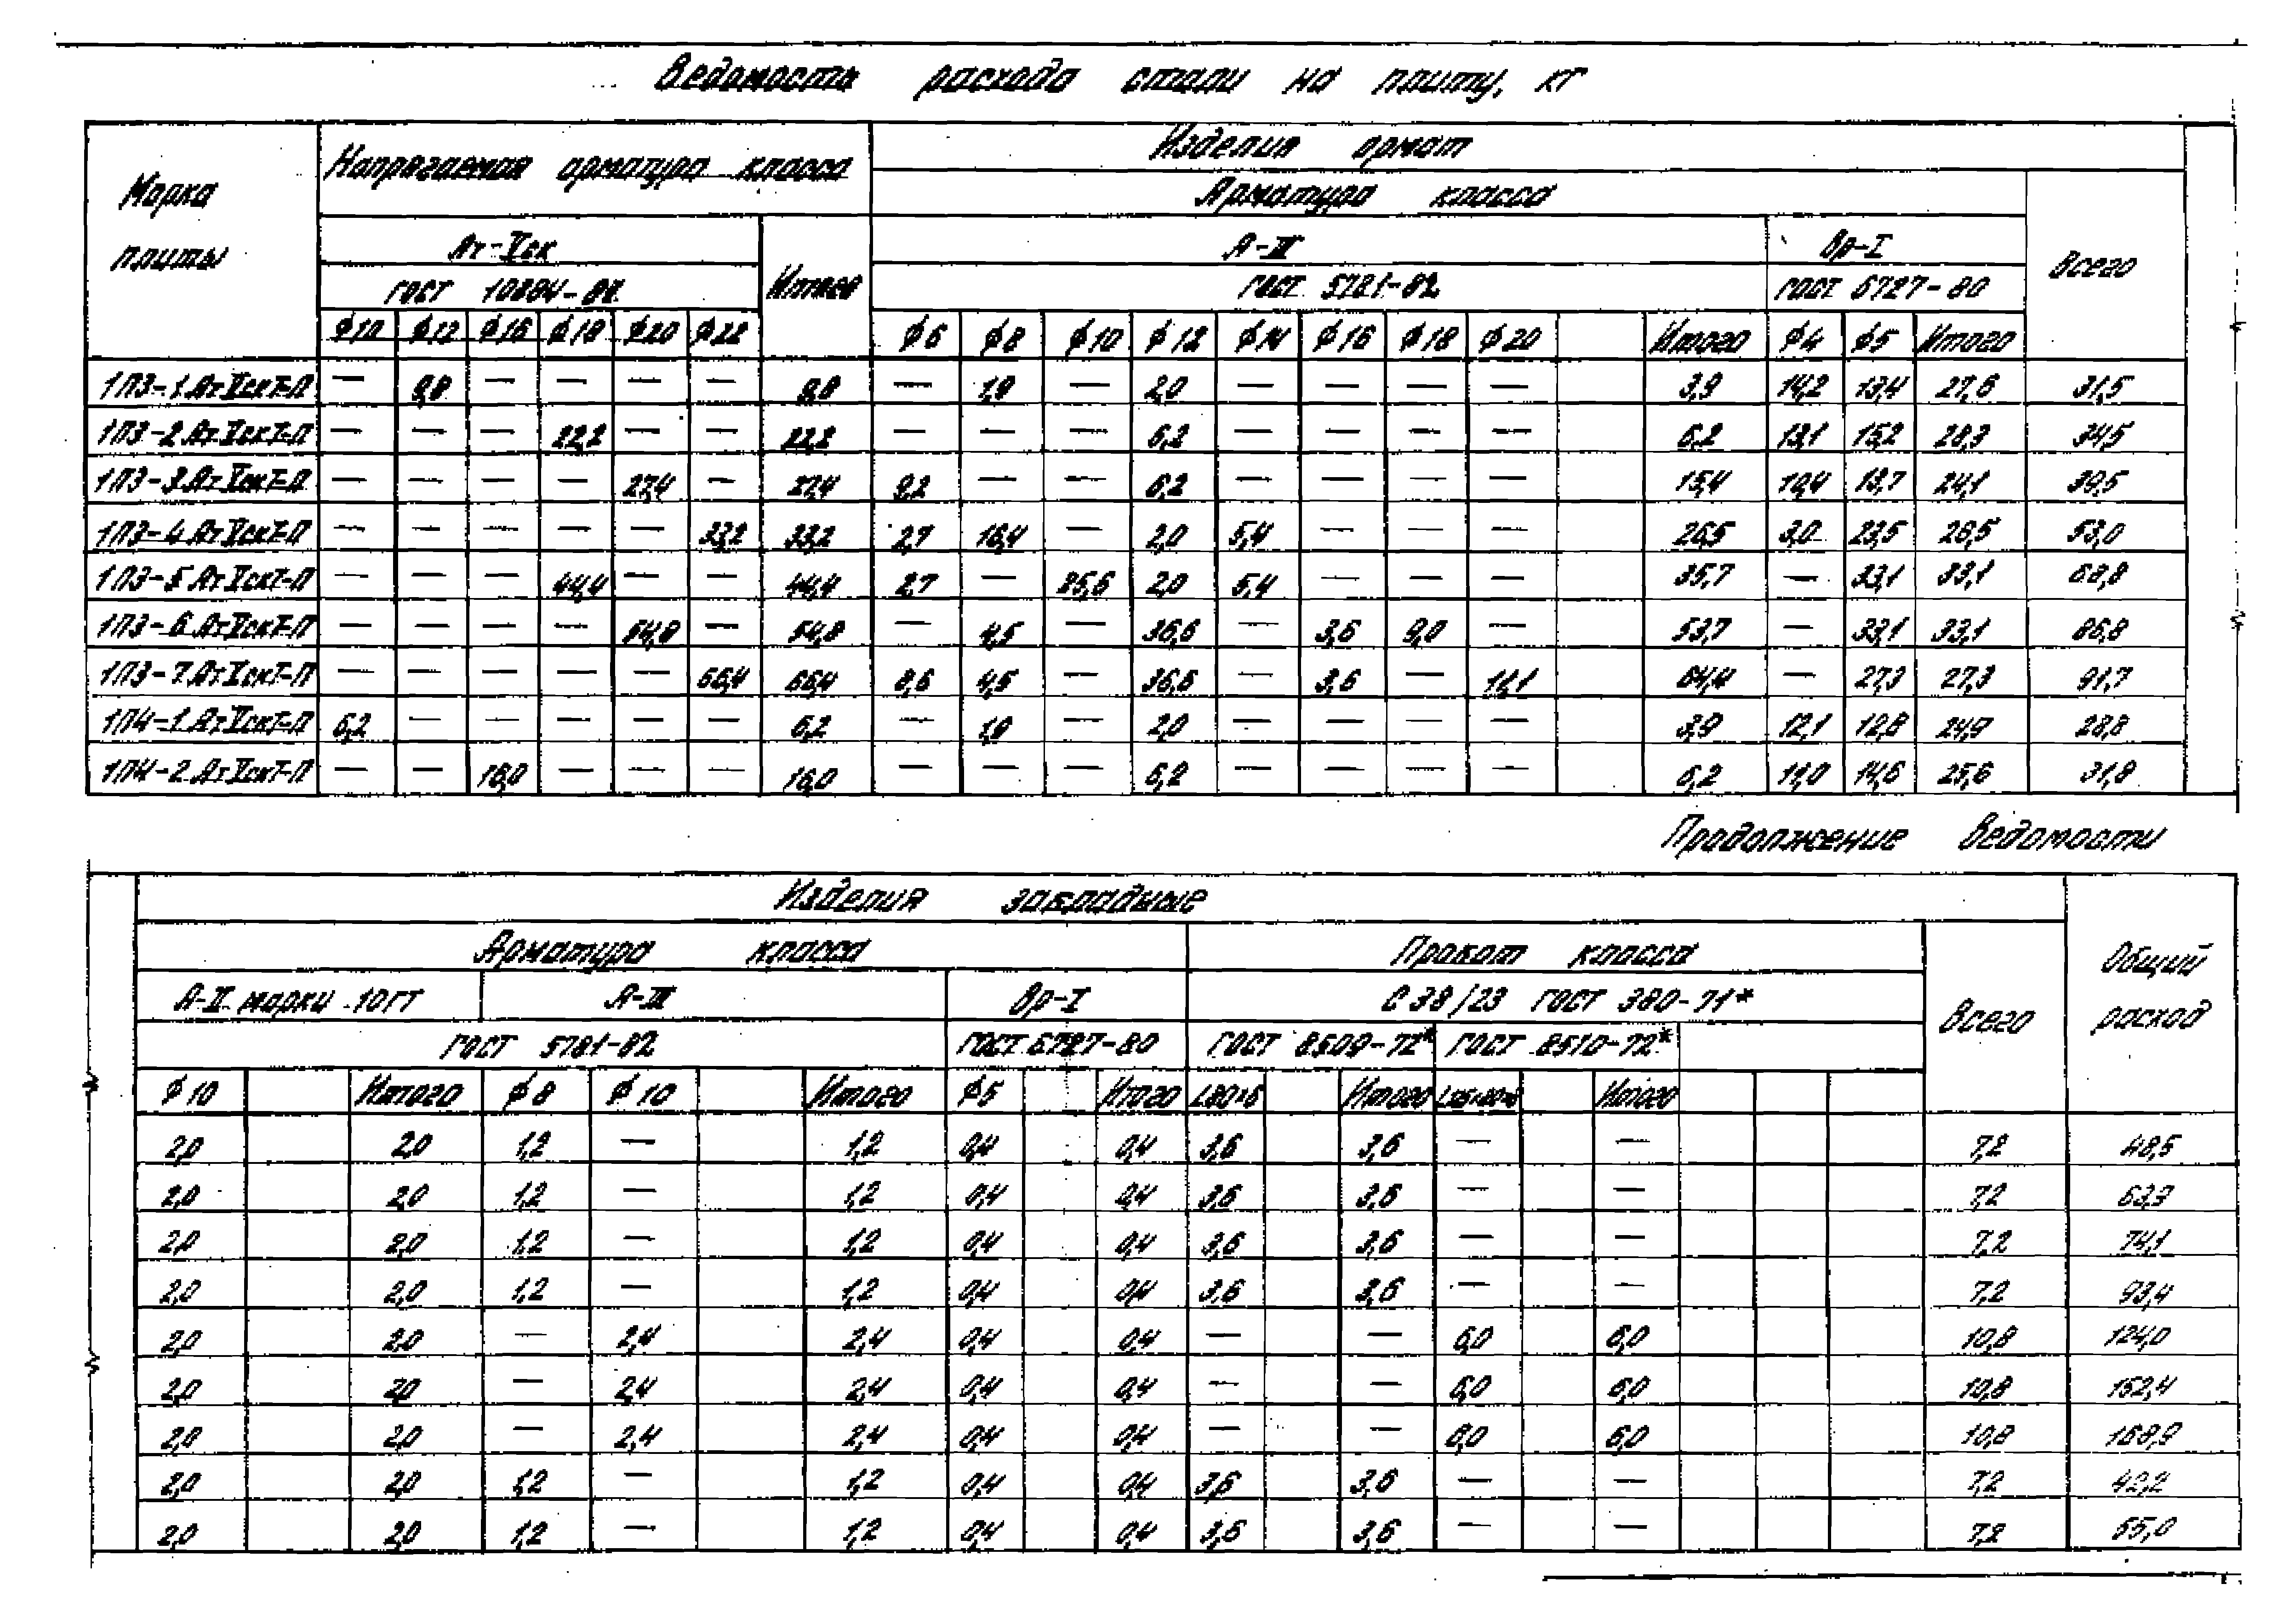 Ведомость расхода стали на плиту, кг
Марка плиты
Напрягаемая арматура класса
Изделия армат
Арматура класса
Ат-Vск
Итого
А-III
Вр-I
Всего
ГОСТ 10884-81
ГОСТ 5781-82
ГОСТ 6727-80
ф10 ф12 ф16 ф18 ф20 ф22 ф6 ф8 ф10 ф12 ф14 ф16 ф18 ф20 Итого ф4 ф5 Итого
1П3-1.АтVскТ-П — 9,8 — — — — 9,8 — 1,9 — 2,0 — — — — 3,9 14,2 13,4 27,6 31,5
1П3-2.АтVскТ-П — — — 22,2 — — 22,2 — — — 6,2 — — — — 6,2 13,1 15,2 28,3 34,5
1П3-3.АтVскТ-П — — — — 27,4 — 27,4 9,2 — — 6,2 — — — — 15,4 10,4 13,7 24,1 39,5
1П3-4.АтVскТ-П — — — — — 33,2 33,2 2,7 16,4 — 2,0 5,4 — — — 26,5 3,0 23,5 26,5 53,0
1П3-5.АтVскТ-П — — — 44,4 — — 44,4 2,7 — 25,6 2,0 5,4 — — — 35,7 — 33,1 33,1 68,8
1П3-6.АтVскТ-П — — — — 54,8 — 54,8 — 4,5 — 36,6 — 3,6 9,0 — 53,7 — 33,1 33,1 86,8
1П3-7.АтVскТ-П — — — — — 66,4 66,4 8,6 4,5 — 36,6 — 3,6 — 11,1 64,4 — 27,3 27,3 91,7
1П4-1.АтVскТ-П 6,2 — — — — — 6,2 — 1,9 — 2,0 — — — — 3,9 12,1 12,8 24,9 28,8
1П4-2.АтVскТ-П — — 16,0 — — — 16,0 — — — 6,2 — — — — 6,2 11,0 14,6 25,6 31,8
Продолжение ведомости
Изделия закладные
Арматура класса
Прокат класса
Всего
Общий расход
А-II марки 10ГТ
А-III
Вр-I
С 38/23 ГОСТ 380-71*
ГОСТ 5781-82
ГОСТ 6727-80
ГОСТ 8509-72*
ГОСТ 8510-72*
ф10 Итого ф8 ф10 Итого ф5 Итого L80×6 Итого Итого
2,0 2,0 1,2 — 1,2 0,4 0,4 3,6 3,6 — — 7,2 48,5
2,0 2,0 1,2 — 1,2 0,4 0,4 3,6 3,6 — — 7,2 63,9
2,0 2,0 1,2 — 1,2 0,4 0,4 3,6 3,6 — — 7,2 74,1
2,0 2,0 1,2 — 1,2 0,4 0,4 3,6 3,6 — — 7,2 93,4
2,0 2,0 — 2,4 2,4 0,4 0,4 — — 6,0 6,0 10,8 124,0
2,0 2,0 — 2,4 2,4 0,4 0,4 — — 6,0 6,0 10,8 152,4
2,0 2,0 — 2,4 2,4 0,4 0,4 — — 6,0 6,0 10,8 168,9
2,0 2,0 1,2 — 1,2 0,4 0,4 3,6 3,6 — — 7,2 42,2
2,0 2,0 1,2 — 1,2 0,4 0,4 3,6 3,6 — — 7,2 55,0